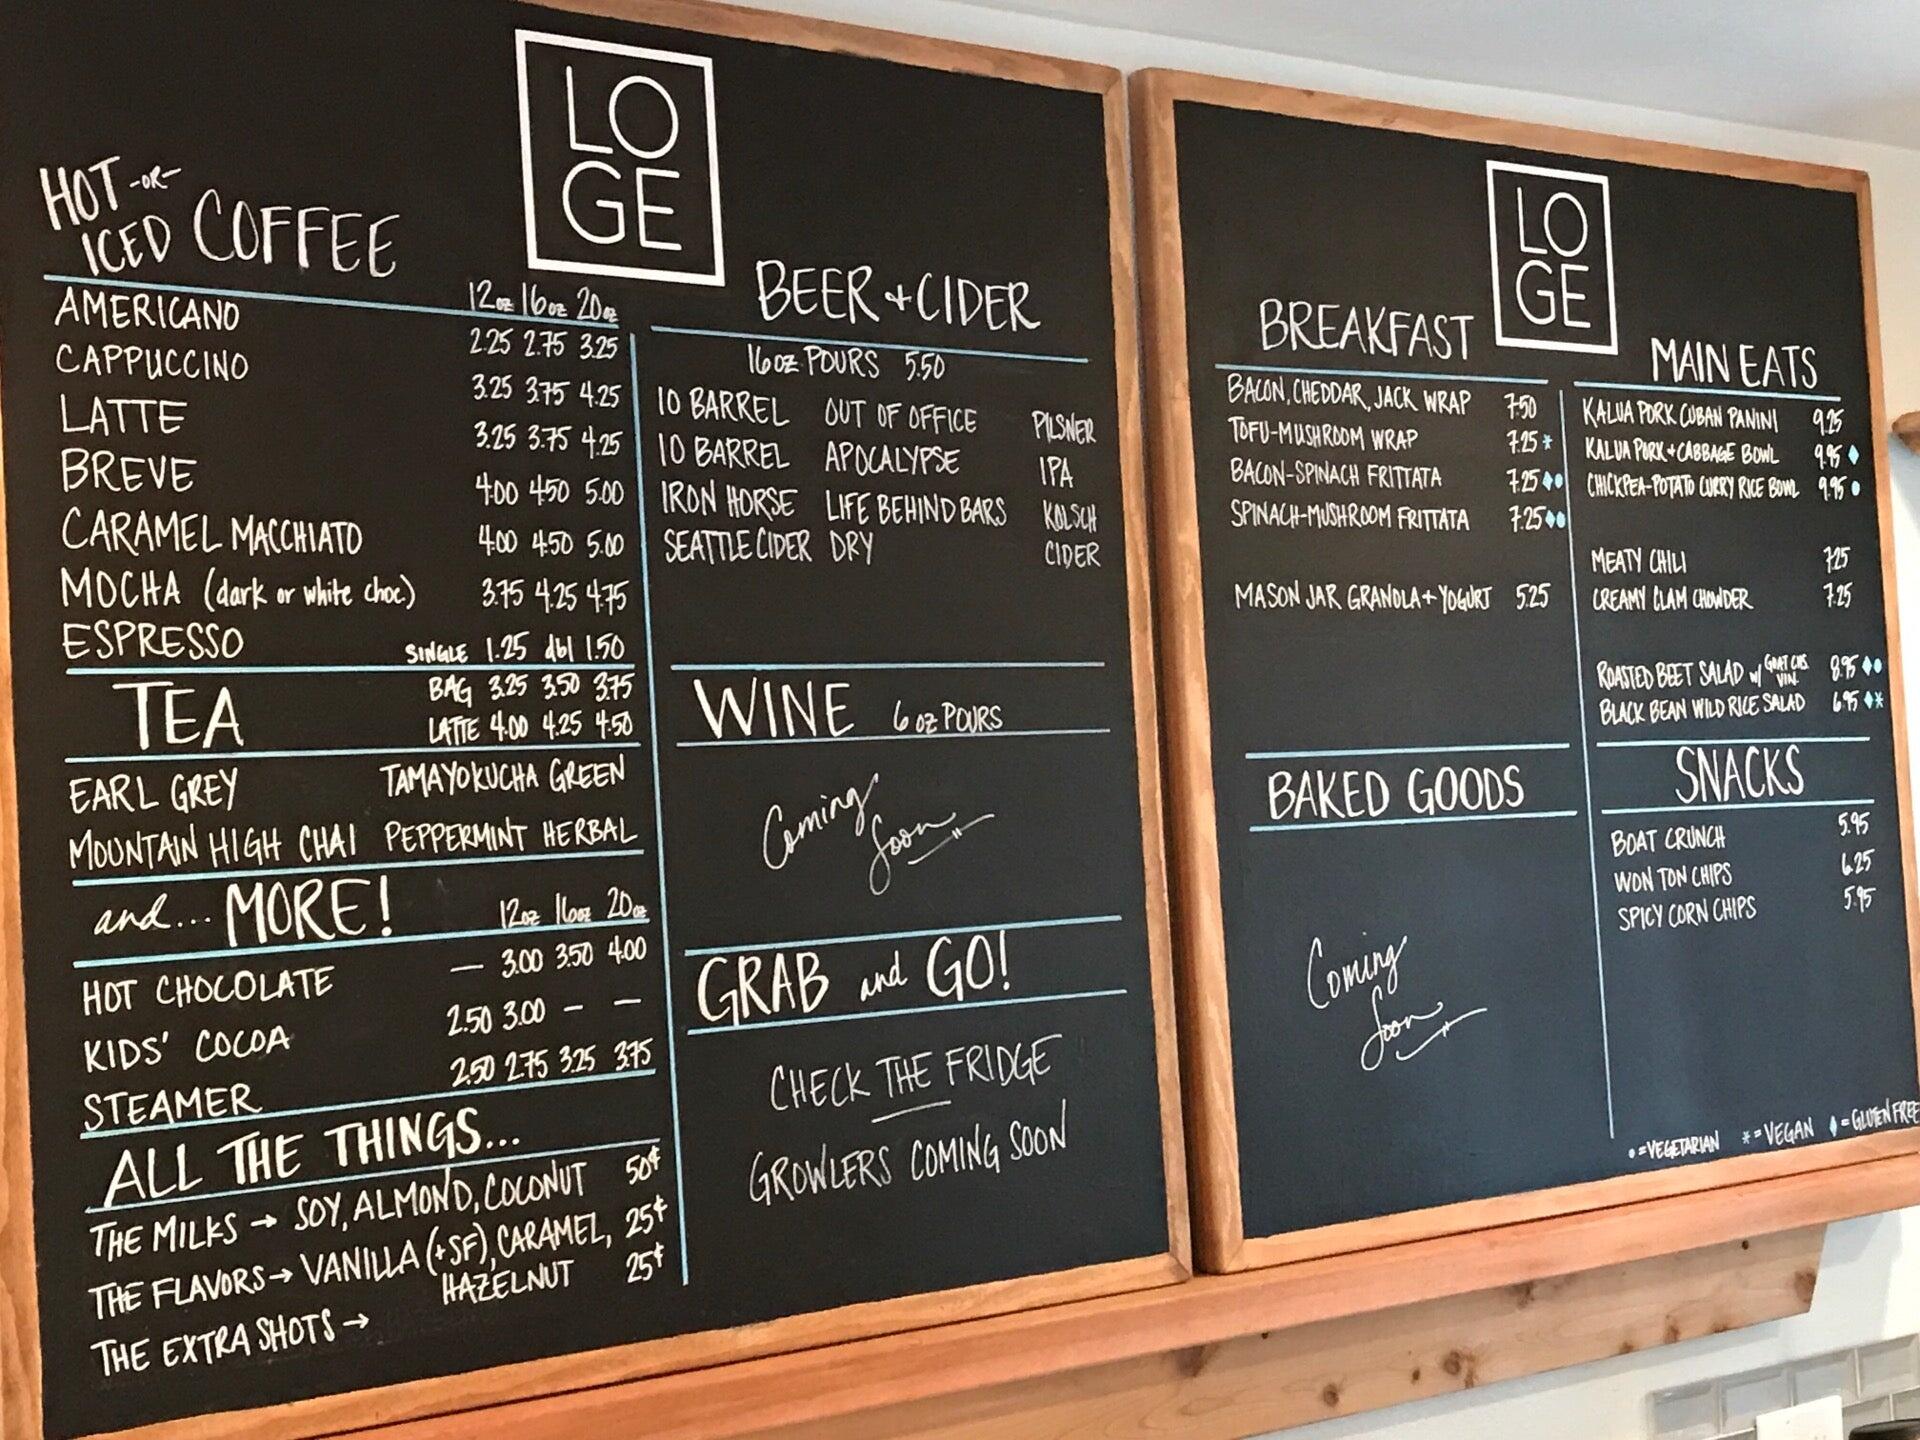 LO
GE
HOT -OR-
ICED COFFEE
12oz 16oz 20oz
AMERICANO 2.25 2.75 3.25
CAPPUCCINO 3.25 3.75 4.25
LATTE 3.25 3.75 4.25
BREVE 4.00 4.50 5.00
CARAMEL MACCHIATO 4.00 4.50 5.00
MOCHA (dark or white choc.) 3.75 4.25 4.75
ESPRESSO SINGLE 1.25 dbl 1.50
TEA
BAG 3.25 3.50 3.75
LATTE 4.00 4.25 4.50
EARL GREY TAMAYOKUCHA GREEN
MOUNTAIN HIGH CHAI PEPPERMINT HERBAL
and... MORE! 12oz 16oz 20oz
HOT CHOCOLATE — 3.00 3.50 4.00
KIDS' COCOA 2.50 3.00 — —
STEAMER 2.50 2.75 3.25 3.75
ALL THE THINGS...
THE MILKS → SOY, ALMOND, COCONUT 50¢
THE FLAVORS → VANILLA (+SF), CARAMEL, 25¢
HAZELNUT
THE EXTRA SHOTS → 25¢
BEER + CIDER
16oz POURS 5.50
10 BARREL OUT OF OFFICE PILSNER
10 BARREL APOCALYPSE IPA
IRON HORSE LIFE BEHIND BARS KOLSCH
SEATTLE CIDER DRY CIDER
WINE 6 oz POURS
Coming
Soon
GRAB and GO!
CHECK THE FRIDGE
GROWLERS COMING SOON
LO
GE
BREAKFAST
BACON, CHEDDAR, JACK WRAP 7.50
TOFU-MUSHROOM WRAP 7.25 *
BACON-SPINACH FRITTATA 7.25 ♦•
SPINACH-MUSHROOM FRITTATA 7.25 ♦•
MASON JAR GRANOLA + YOGURT 5.25
BAKED GOODS
Coming
Soon
MAIN EATS
KALUA PORK CUBAN PANINI 9.25
KALUA PORK + CABBAGE BOWL 9.95 ♦
CHICKPEA-POTATO CURRY RICE BOWL 9.95 •
MEATY CHILI 7.25
CREAMY CLAM CHOWDER 7.25
ROASTED BEET SALAD w/ GOAT CHS. VIN. 8.95 ♦•
BLACK BEAN WILD RICE SALAD 6.95 ♦*
SNACKS
BOAT CRUNCH 5.95
WON TON CHIPS 6.25
SPICY CORN CHIPS 5.95
• = VEGETARIAN * = VEGAN ♦ = GLUTEN FREE